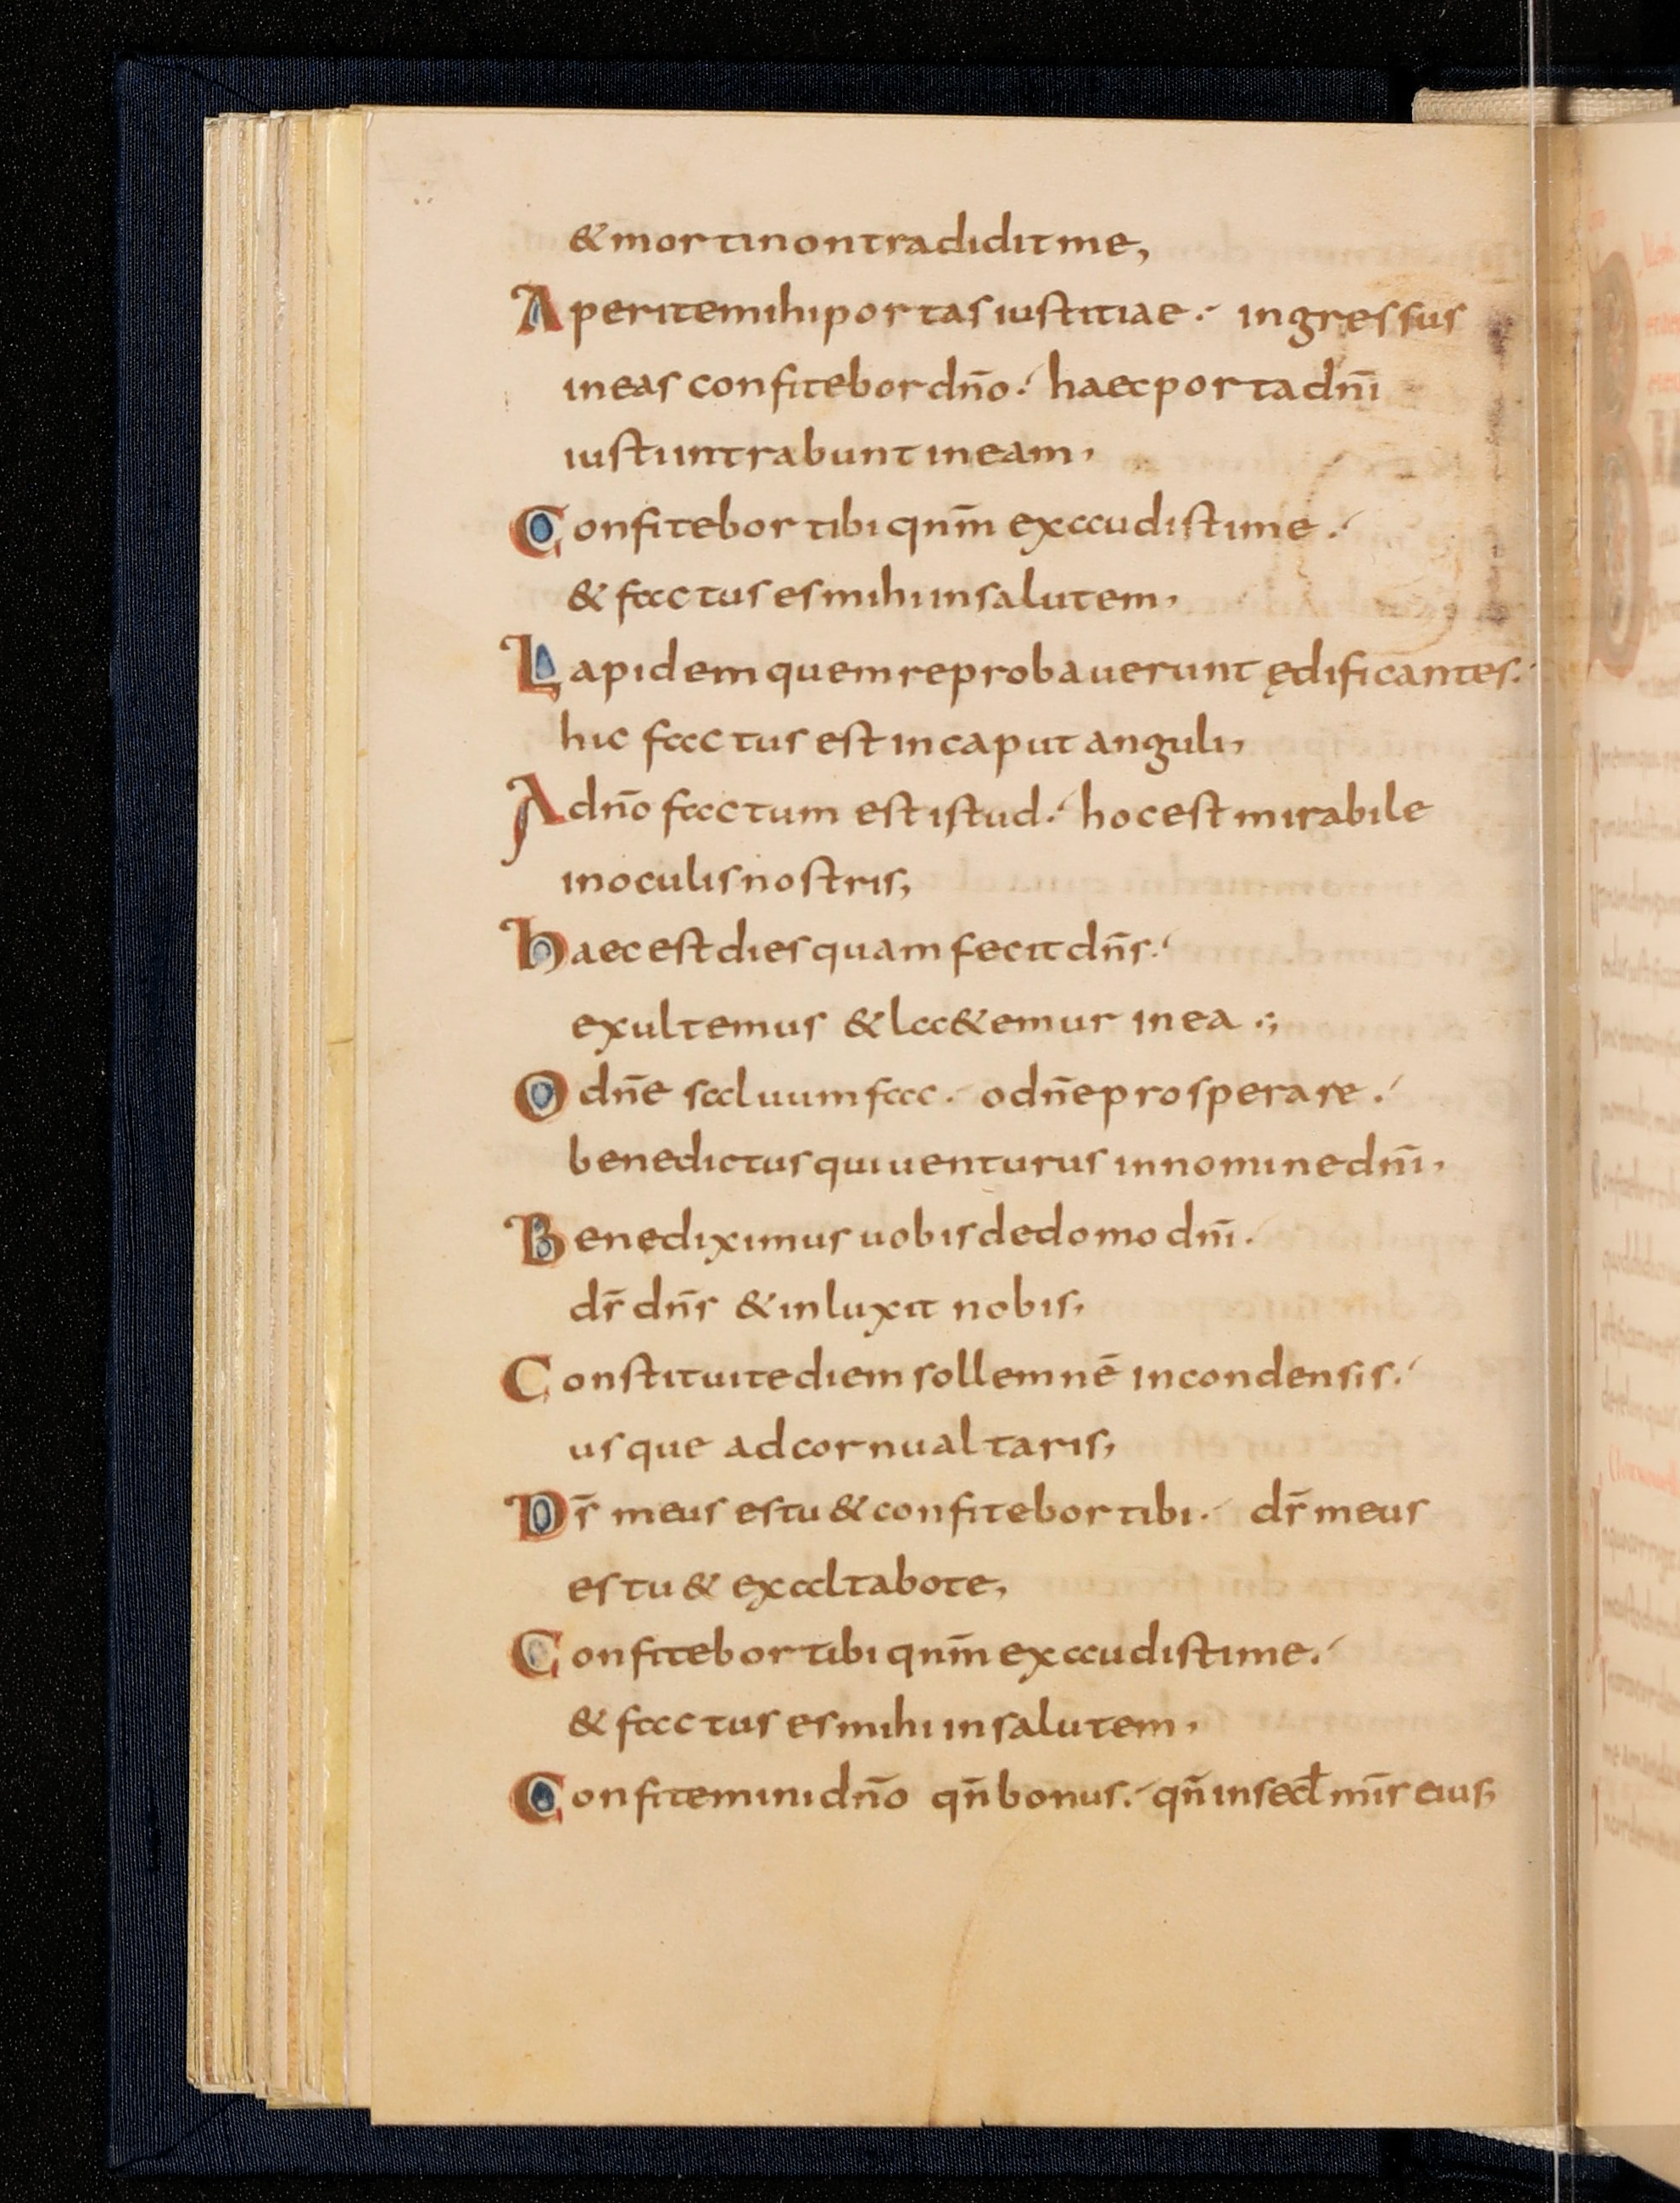 & morti non tradidit me,
Aperite mihi portas iustitiae. ingressus
in eas confitebor dño. haec porta dñi
iusti intrabunt in eam,
Confitebor tibi qnm̄ exaudisti me.
& factus es mihi in salutem,
Lapidem quem reprobauerunt ędificantes.
hic factus est in caput anguli,
A dño factum est istud. hoc est mirabile
in oculis nostris,
Haec est dies quam fecit dñs.
exultemus & laet&emur in ea .;
O dñe saluum fac. o dñe prosperare.
benedictus qui uenturus in nomine dñi,
Benediximus uobis de domo dñi.
ds̄ dñs & inluxit nobis,
Constituite diem sollemnē in condensis.
usque ad cornu altaris,
Ds̄ meus es tu & confitebor tibi. ds̄ meus
es tu & exaltabo te,
Confitebor tibi qnm̄ exaudisti me.
& factus es mihi in salutem,
Confitemini dño qn̄ bonus. qn̄ in sećl mīs eius,